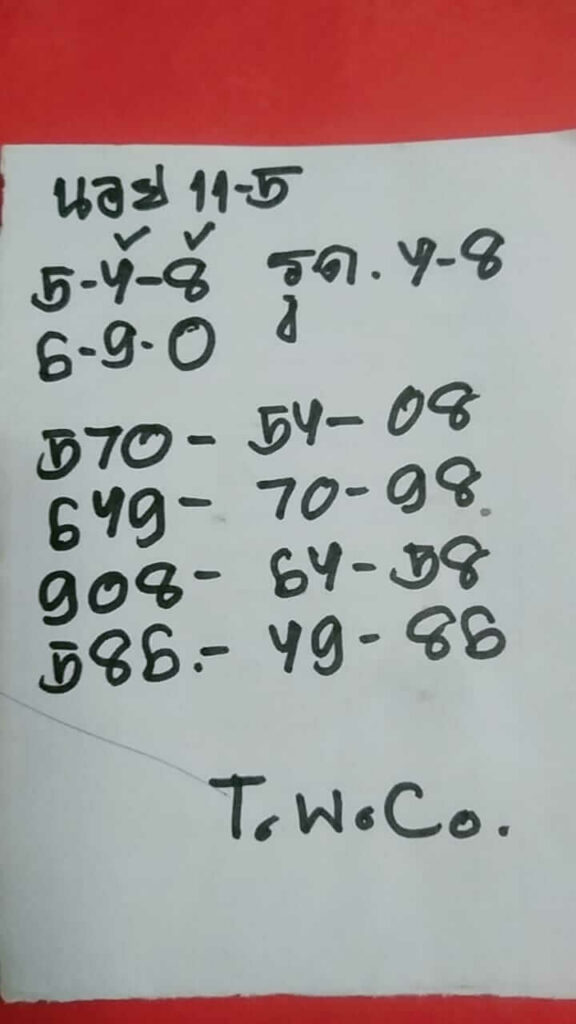 นอย 11-5
5-4-8 รูด. 4-8
6-9-0
570 - 54 - 08
649 - 70 - 98.
908 - 64 - 58
586.- 49 - 86
T.W.Co.